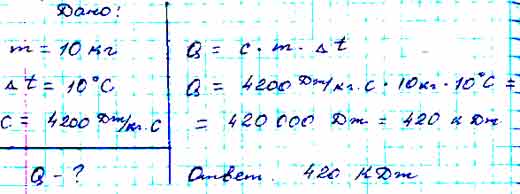 Дано:
m = 10 кг
Δt = 10°C
c = 4200 Дж/кг·С
Q - ?
Q = c · m · Δt
Q = 4200 Дж/кг·С · 10кг · 10°C =
= 420 000 Дж = 420 кДж
Ответ. 420 кДж